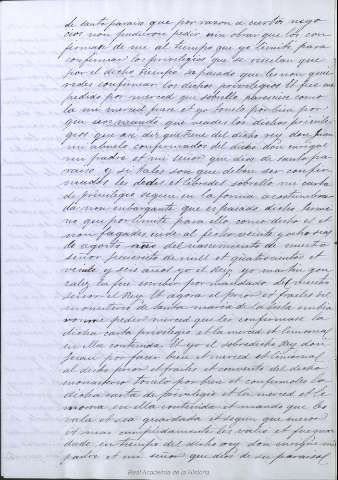 de santo paraiso que por razon de ciertos nego
cios non pudieron pedir nin obrar que les con
firmase de mi al tiempo que yo limite para
confirmar los privilegios que se rescelan que
por el dicho tiempo es pasado que les non que
redes confirmar los dichos privilegios Et fue me
pedido por merced que sobrello paresciese como
la mi merced fuese et yo tovelo por bien por
que vos mando que veades los dichos privile
gios que asi diz que tiene del dicho rey don Juan
mi abuelo confirmados del dicho don enrique
mi padre et mi señor que dios de santo para
iso et si tales son que deban ser confir
mados les dedes et libredes sobrello mi carta
de privilegio segunt en la forma acostumbra
da non embargante que es pasado dicho termi
no que por limite para ello como dicho es et
non fagades ende al fecho veinte y ocho dias
de agosto año del nascimiento de nuestro
señor jesucristo de mill et quatrocientos et
veinte y seis años yo el Rey yo martin gon
zalez la fice escribir por mandado del nuestro
señor el Rey Et agora el prior et frailes del
monesterio de santa maria de la sisla embia
ronme pedir merced que les confirmase la
dicha carta privilegio et la merced et limosna
en ella contenida Et yo el sobredicho Rey don
Juan por facer bien et merced et limosna
al dicho prior et frailes et convento del dicho
monasterio tovelo por bien et confirmoles la
dicha carta de privilegio et la merced et li
mosna en ella contenida et mando que les
vala et sea guardada segun que mejor
et mas complidamente les valio et fue guar
dada en tiempo del dicho rey don enrique mi
padre et mi señor que dios de su paraiso
Real Academia de la Historia